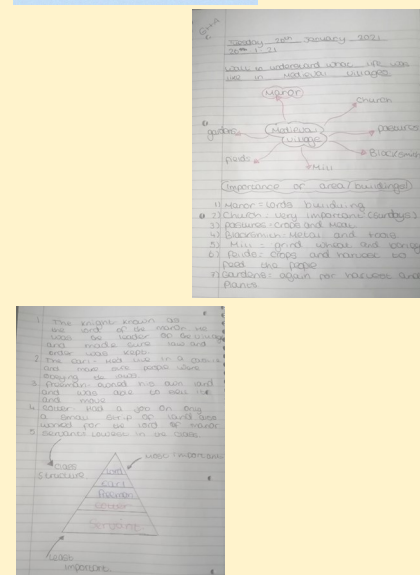 Tuesday 26th January 2021
26th 1 21
WALT: to understand what life was
like in Medieval villages
Manor
Church
gardens
Medieval
village
pastures
Blacksmith
fields
Mill
Importance or area/buildings
1) Manor = Lords building
2) Church: very important (Sundays)
3) Pastures = Crops and
4) Blacksmith: Metal and tools
5) Mill = grind wheat and
6) Fields: Crops and harvest to
feed the people
7) Gardens: again for harvest and
Plants
1. The knight known as
the lord of the manor. He
was the leader of the village
and made sure law and
order was kept.
2. The Earl: Had live in a
and made sure people were
obeying the
3. Freeman: owned his own land
and was able to
and move
4. Had a job on
a small strip of land and
worked for the lord of Manor
5. Servants lowest in the class
Class
Structure
Most important
Lord
Earl
Freeman
Servant
Least
important